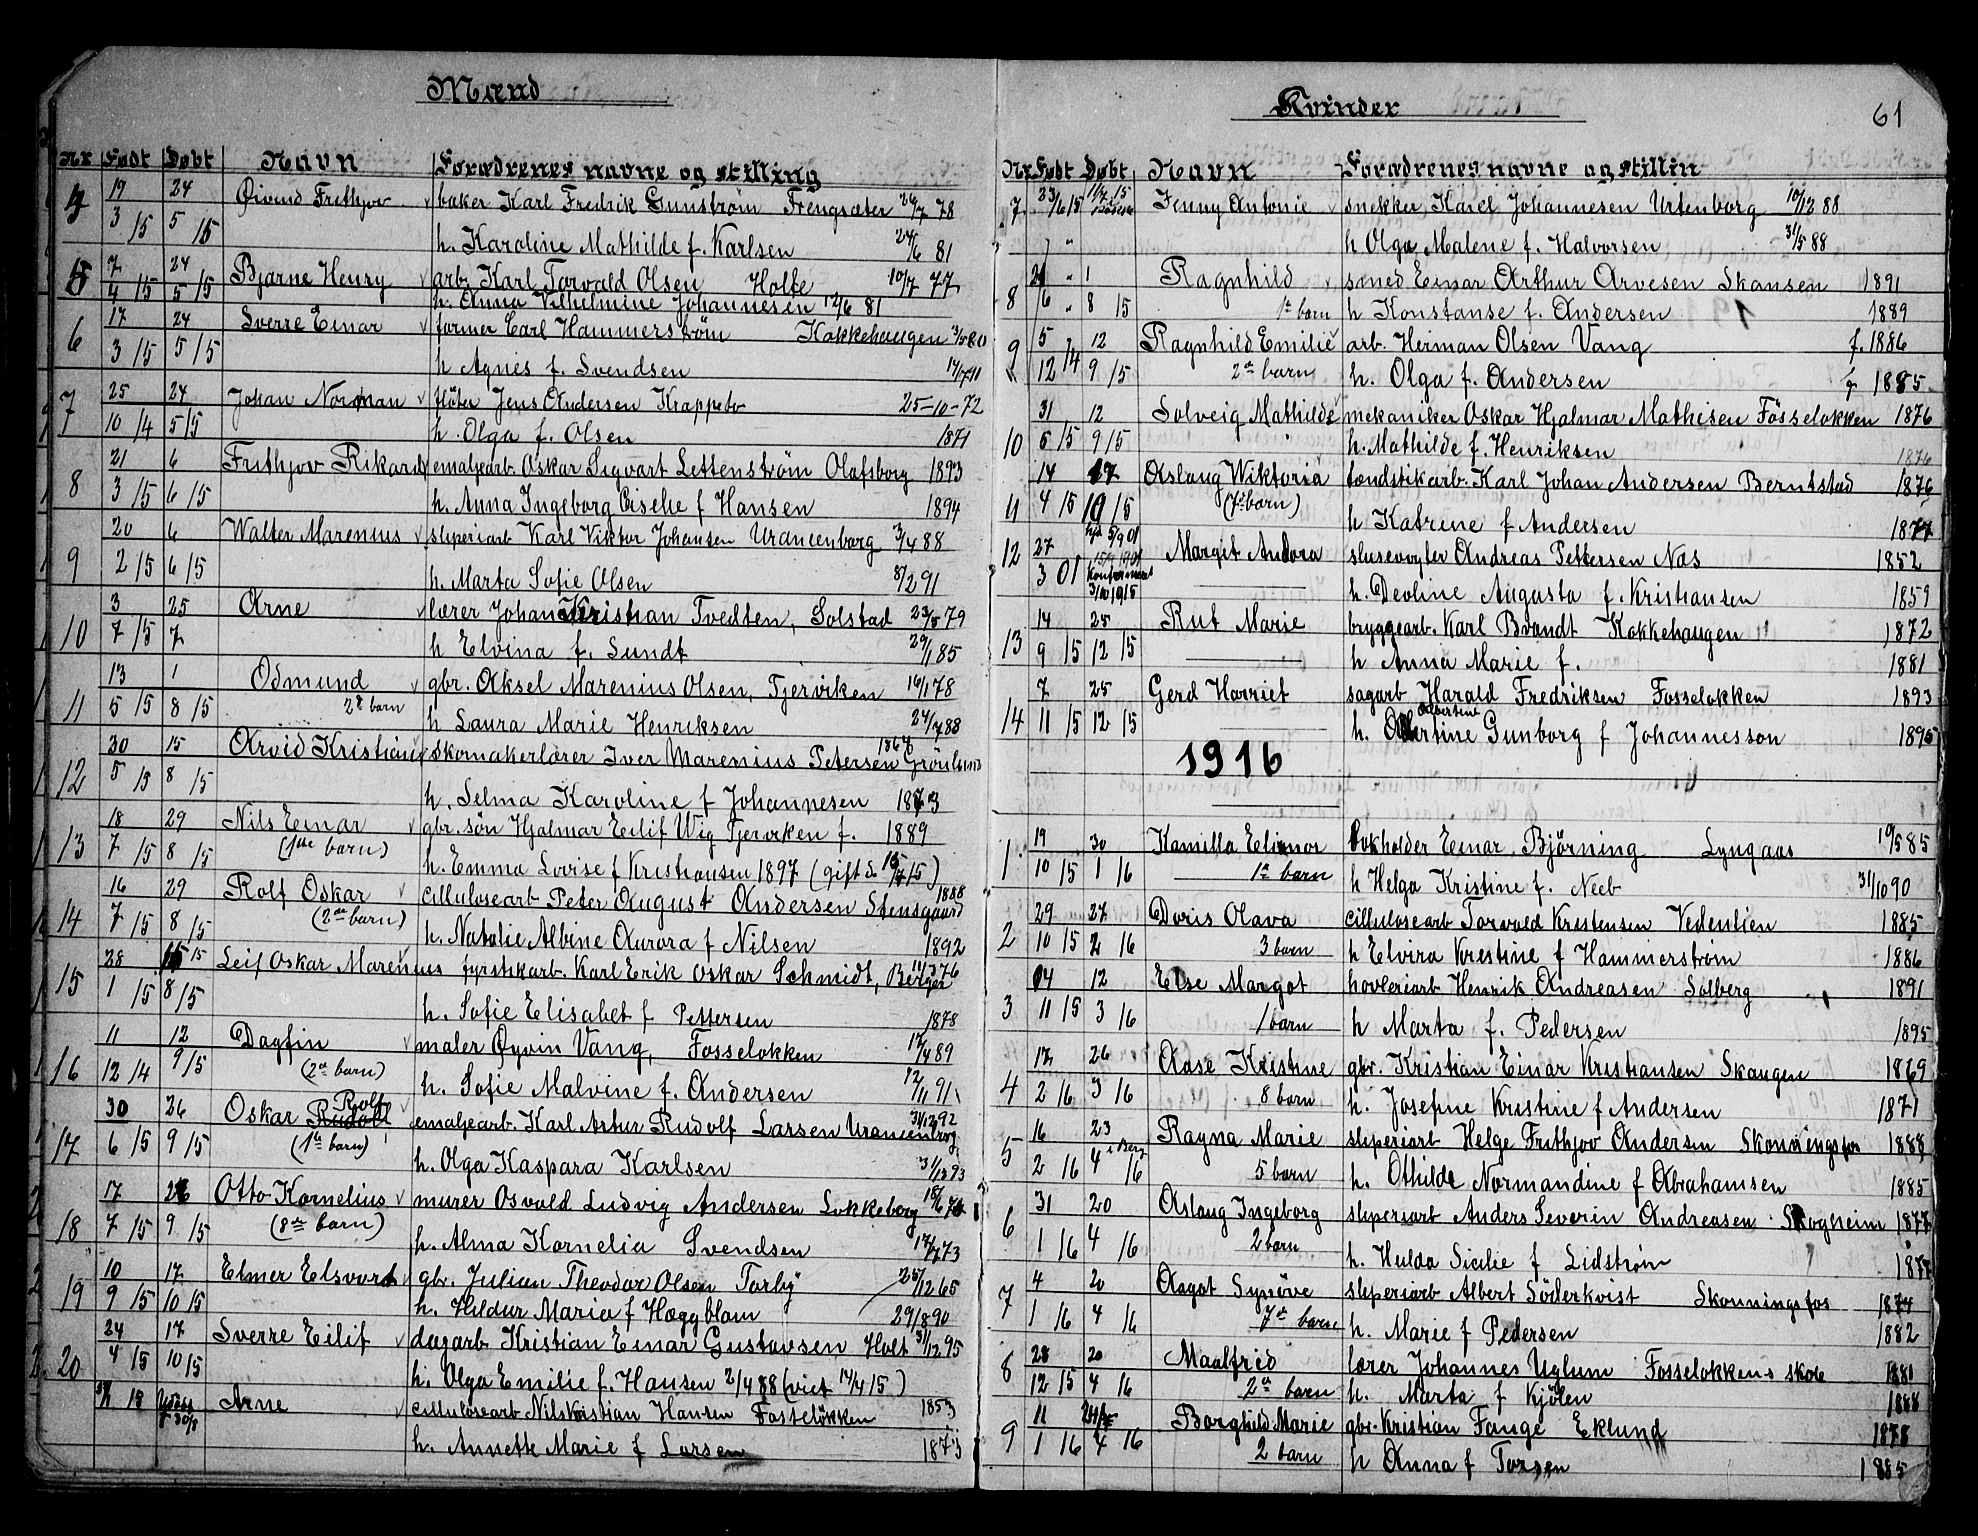 Mænd
Nr Født Døbt Navn Forældrenes navne og stilling
4 19/3 15 24/5 15 Øivind Frithjov baker Karl Fredrik Gunstrøm Frengsæter 26/7 78
h. Karoline Mathilde f. Karlsen 24/6 81
5 7/4 15 24/5 15 Bjarne Henry arb. Karl Torvald Olsen Holte 10/7 77
h. Anna Vilhelmine Johannesen 12/6 81
6 17/3 15 24/5 15 Sverre Einar former Carl Hammerstrøm Kakkehaugen 3/5 80
h Agnes f. Svendsen
7 25/10 14 24/5 15 Johan Norman fløter Jens Andersen Krappeto 25-10-72
h. Olga f. Olsen 1871
8 21/3 15 6/6 15 Frithjov Rikard emaljearb. Oskar Sigvart Lettenstrøm Olafsborg 1893
h. Anna Ingeborg Cisilie f Hansen 1894
9 20/2 15 6/6 15 Walter Marenius sliperiarb Karl Viktor Johansen Uranienborg 3/4 88
h. Marta Sofie Olsen 8/2 91
10 3/7 15 25/7 Arne lærer Johan Kristian Tvedten, Solstad 23/5 79
h Elvina f. Sundt 29/1 85
11 13/5 15 1/8 15 Odmund gbr. Aksel Marenius Olsen, Tjerviken 16/1 78
2det barn h Laura Marie Henriksen 24/7 88
12 30/5 15 15/8 15 Arvid Kristian skomakerlærer Iver Marenius Petersen 1868
h. Selma Karoline f Johannesen 1873
13 18/7 15 29/8 15 Nils Einar gbr. søn Hjalmar Eilif Wig Tjerviken f. 1889
(1ste barn) h. Emma Lovise f Kristiansen 1897 (gift d. 15/7 15)
14 16/7 15 29/8 15 Rolf Oskar celluloseearb Peter August Andersen Stensgaard 1888
(2det barn) h. Natalie Albine Aurora f Nilsen 1892
15 28/1 15 15/8 15 Leif Oskar Marenius fyrstikarb. Karl Erik Oskar Schmidt, Berger 11/3 76
h. Sofie Elisabet f Pettersen 1878
16 11/12 14 12/9 15 Dagfin maler Øyvin Vang, Fosseløkken 17/4 89
(2det barn) h. Sofie Malvine f. Andersen 12/11 91
17 30/6 15 26/9 15 Oskar Rudolf Rolf emaljearb. Karl Artur Rudolf Larsen Uranienborg 31/12 92
(1ste barn) h. Olga Kaspara Karlsen 31/12 93
18 17/7 15 26/9 15 Otto Kornelius murer Osvald Ludvig Andersen Løkkeberg
(8de barn) h. Alma Kornelia Svendsen 73
19 10/9 15 17/10 15 Elmer Elsvord gbr. Julian Theodor Olsen Torby 25/12 65
h. Hildur Maria f Hæggblom 29/8 90
20 24/4 15 17/10 15 Sverre Eilif dagarb Kristian Einar Gustavsen Holt 31/12 95
h. Olga Emilie f. Hansen 2/4 88 (viet 14/4 15)
Arne celluloseearb Nils Kristian Hansen Fosseløkken 1853
h. Annette Marie f Larsen 1873
Kvinder 61
Nr Født Døbt Navn Forældrenes navne og stillin
7 23/6 15 11/7 15 Jenny Antonie snekker Karel Johannesen Urtenborg 10/12 88
h Olga Malene f. Halvorsen 31/5 88
8 Ragnhild smed Einar Arthur Arvesen Skansen 1891
1te barn h Konstanse f. Andersen 1889
9 5/12 14 12/9 15 Ragnhild Emilie arb. Herman Olsen Vang f. 1886
2det barn h. Olga f. Andersen f 1885
10 31/5 15 12/9 15 Solveig Mathilde mekaniker Oskar Hjalmar Mathisen Fösseløkken 1876
h. Mathilde f. Henriksen 1876
11 14/4 15 17/10 15 Aslaug Wiktoria tændstikarb. Karl Johan Andersen Berntstad 1876
(7de barn) h Katrine f Andersen 1877
12 27/3 01 hjd 5/9 01 Margit Andora slusevogter Andreas Pettersen Næs 1852
Konfirmert 3/10 1915 h. Devline Augusta f. Kristiansen 1859
13 14/9 15 25/12 15 Rut Marie bryggearb. Karl Brandt Kokkehaugen 1872
h Anna Marie f. 1881
14 7/11 15 25/12 15 Gerd Harriet sagarb Harald Fredriksen Fosseløkken 1893
h. Albertine Gunborg f Johannesson 1895
1916
1 19/10 15 30/1 16 Kamilla Elinor bokholder Einar Bjørning Lyngaas 19/5 85
1te barn h Helga Kristine f. Neeb 31/10 90
2 29/10 15 27/2 16 Doris Olava celluloseearb Torvald Kristensen Vedenlien 1885
3 barn h Elvira Kristine f Hammerstrøm 1886
3 04/11 15 12/3 16 Else Margot høvleriarb Henrik Andreasen Solberg 1891
1 barn h Marta f. Pedersen 1895
4 17/2 16 26/3 16 Aase Kristine gbr. Kristian Einar Kristiansen Skaugen 1869
8 barn h. Josefine Kristine f Andersen 1871
5 16/2 16 23/4 16 i Berg Ragna Marie sliperiarb Helge Frithjov Andersen Skonningsfos 1888
5 barn h. Othilde Normandine f Abrahamsen 1885
6 31/1 16 20/4 16 Aslaug Ingeborg sliperiarb Anders Severin Andreasen Skogheim 1877
2 barn h. Hulda Sicilie f Lidstrøm
7 4/1 16 20/4 16 Aagot Synøve sliperiarb Albert Söderkvist Skonningsfos 1874
7de barn h. Marie f Pedersen 1882
8 28/12 15 20/4 16 Maalfrid lærer Johannes Uglum Fosseløkkens skole 1881
2det barn h. Marta f Kjølen 1888
9 11/1 16 24/4 16 Borghild Marie gbr. Kristian Fange Eklund 1878
2 barn h Anna f Torsen 1885